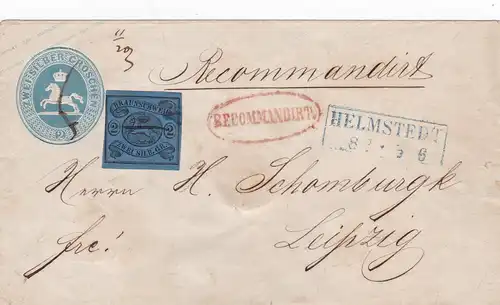 ZWEI SILBER GROSCHEN
11/29
Recommandirt
BRAUNSCHWEIG
2 2
ZWEI SILB. GR.
RECOMMANDIRT.
HELMSTEDT
Herrn H. Schomburgk
fre!
Leipzig